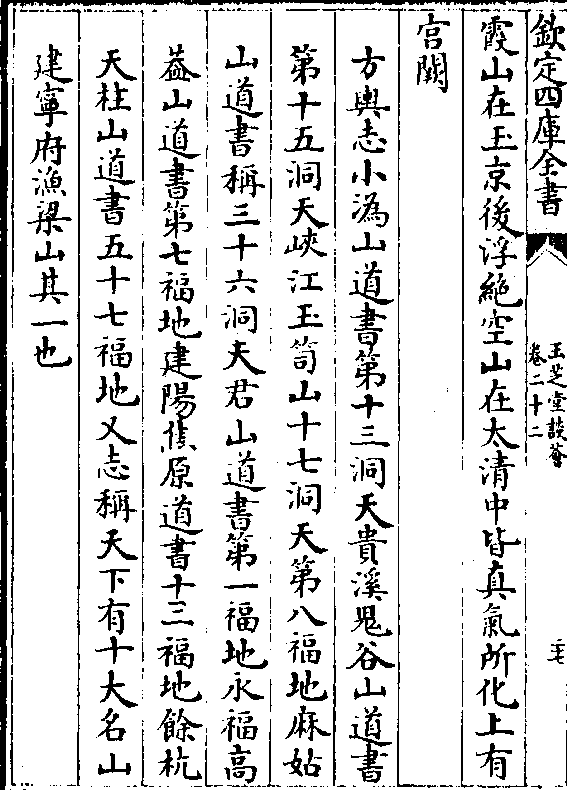 欽定四庫全書
玉芝堂談薈
卷二十二
二七
霞山在玉京後浮絶空山在太清中皆真氣所化上有
宫闕
方輿志小溈山道書第十三洞天貴溪鬼谷山道書
第十五洞天峽江玉笥山十七洞天第八福地麻姑
山道書稱三十六洞天君山道書第一福地永福高
葢山道書第七福地建陽焦原道書十三福地餘杭
天柱山道書五十七福地又志稱天下有十大名山
建寧府漁梁山其一也